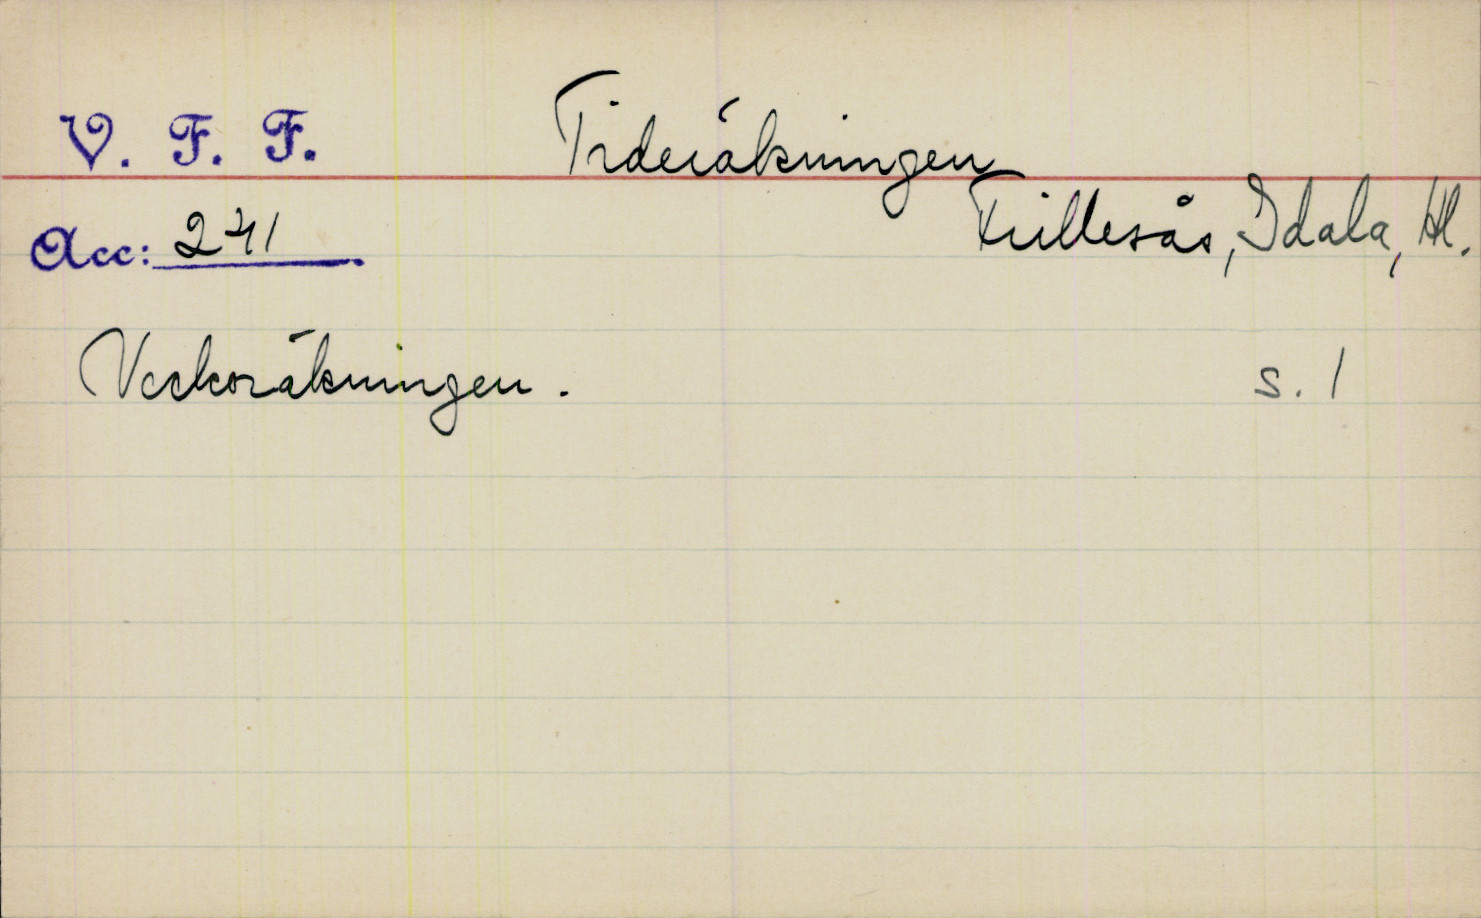 V. F. F.
Tideräkningen
Frillesås, Idala, Hl.
Acc: 241
Veckoräkningen.
s. 1